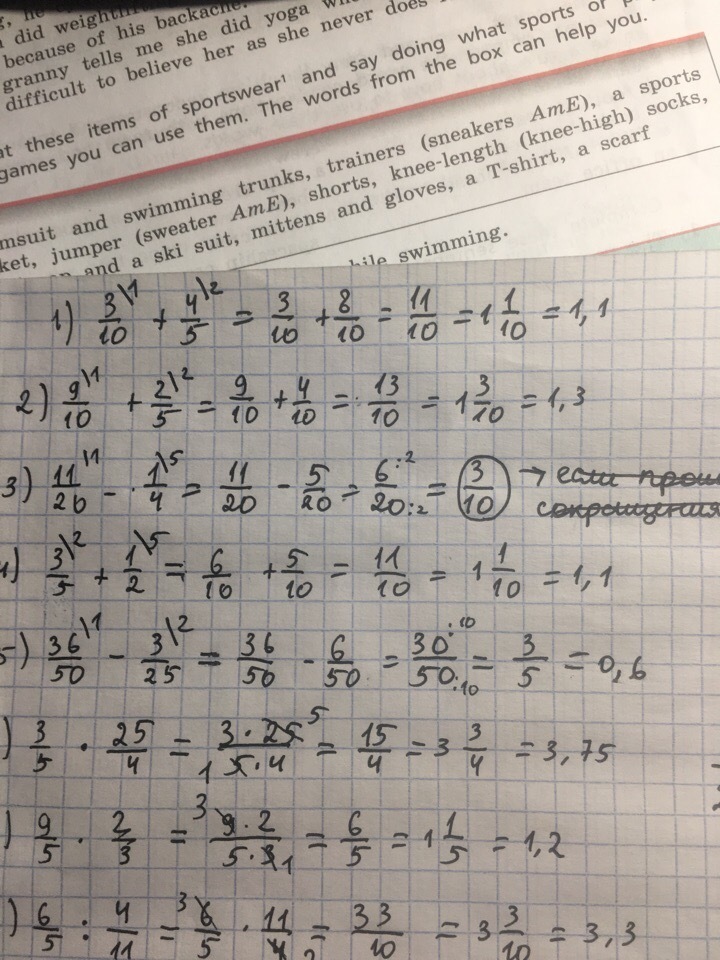 because of his backache.
granny tells me she did yoga
difficult to believe her as she never does
at these items of sportswear¹ and say doing what sports or
games you can use them. The words from the box can help you.
msuit and swimming trunks, trainers (sneakers AmE), a sports
ket, jumper (sweater AmE), shorts, knee-length (knee-high) socks,
and a ski suit, mittens and gloves, a T-shirt, a scarf
while swimming.
1) 3/10 \1 + 4/5 \2 = 3/10 + 8/10 = 11/10 = 1 1/10 = 1,1
2) 9/10 \1 + 2/5 \2 = 9/10 + 4/10 = 13/10 = 1 3/10 = 1,3
3) 11/20 \1 - 1/4 \5 = 11/20 - 5/20 = 6:2/20:2 = 3/10 → если
сокращения
4) 3/5 \2 + 1/2 \5 = 6/10 + 5/10 = 11/10 = 1 1/10 = 1,1
5) 36/50 \1 - 3/25 \2 = 36/50 - 6/50 = 30:10/50:10 = 3/5 = 0,6
) 3/5 · 25/4 = 3·25 5/1 5·4 = 15/4 = 3 3/4 = 3,75
) 9/5 · 2/3 = 3 9·2/5·3 1 = 6/5 = 1 1/5 = 1,2
) 6/5 : 4/11 = 3 6/5 · 11/4 2 = 33/10 = 3 3/10 = 3,3